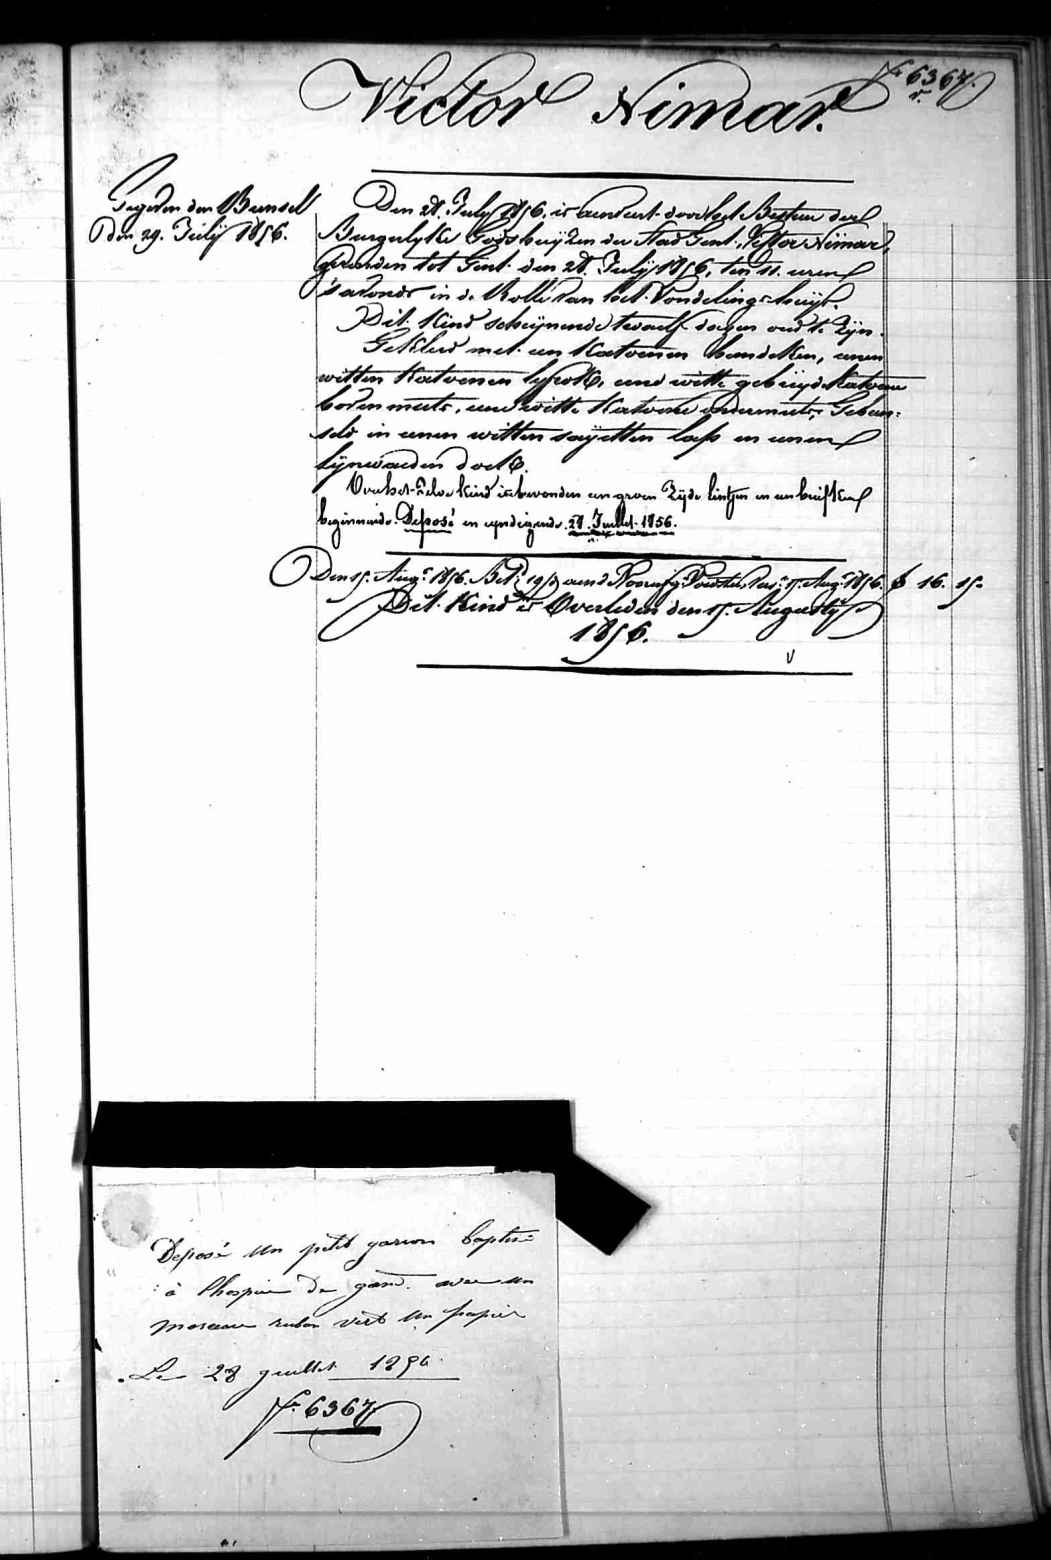 N.º 6367.
r.
Victor Nimar.
Gegeven den Bunsel
den 29. Julÿ 1856.
Den 28. July 1856. is aenveert door het Bestuer der
Burgerlyke Godshuyzen der stad Gent, Victor Nimar,
gevonden tot Gent den 28. July 1856, ten 11. uren
's avonds in de Rolle van het Vondelingshuys.
Dit Kind schynende twaelf dagen oud te zyn.
Gekleed met een Katoenen bandeken, eenen
witten Katoenen lyfrok, eene witte gebreyde Katoene
bovenmuts, eene witte Katoene ondermuts, Gebun-
seld in eenen witten sayetten lap en eenen
lynwaeden doek.
Over het zelve kind is bevonden een groen Zyde lintjen en een briefken
beginnende Deposé en eyndigende 28. Juillet 1856.
Den 15. Aug.t 1856. Bet. aen de 15. Aug.t 1856. 16. 15.
Dit Kind is Overleden den 15. Augusty
1856.
Deposé un petit garcon baptisé
à l'hospice de gand. avec un
morceau ruban vert un papier
Le 28 juillet 1856.
N.º 6367.